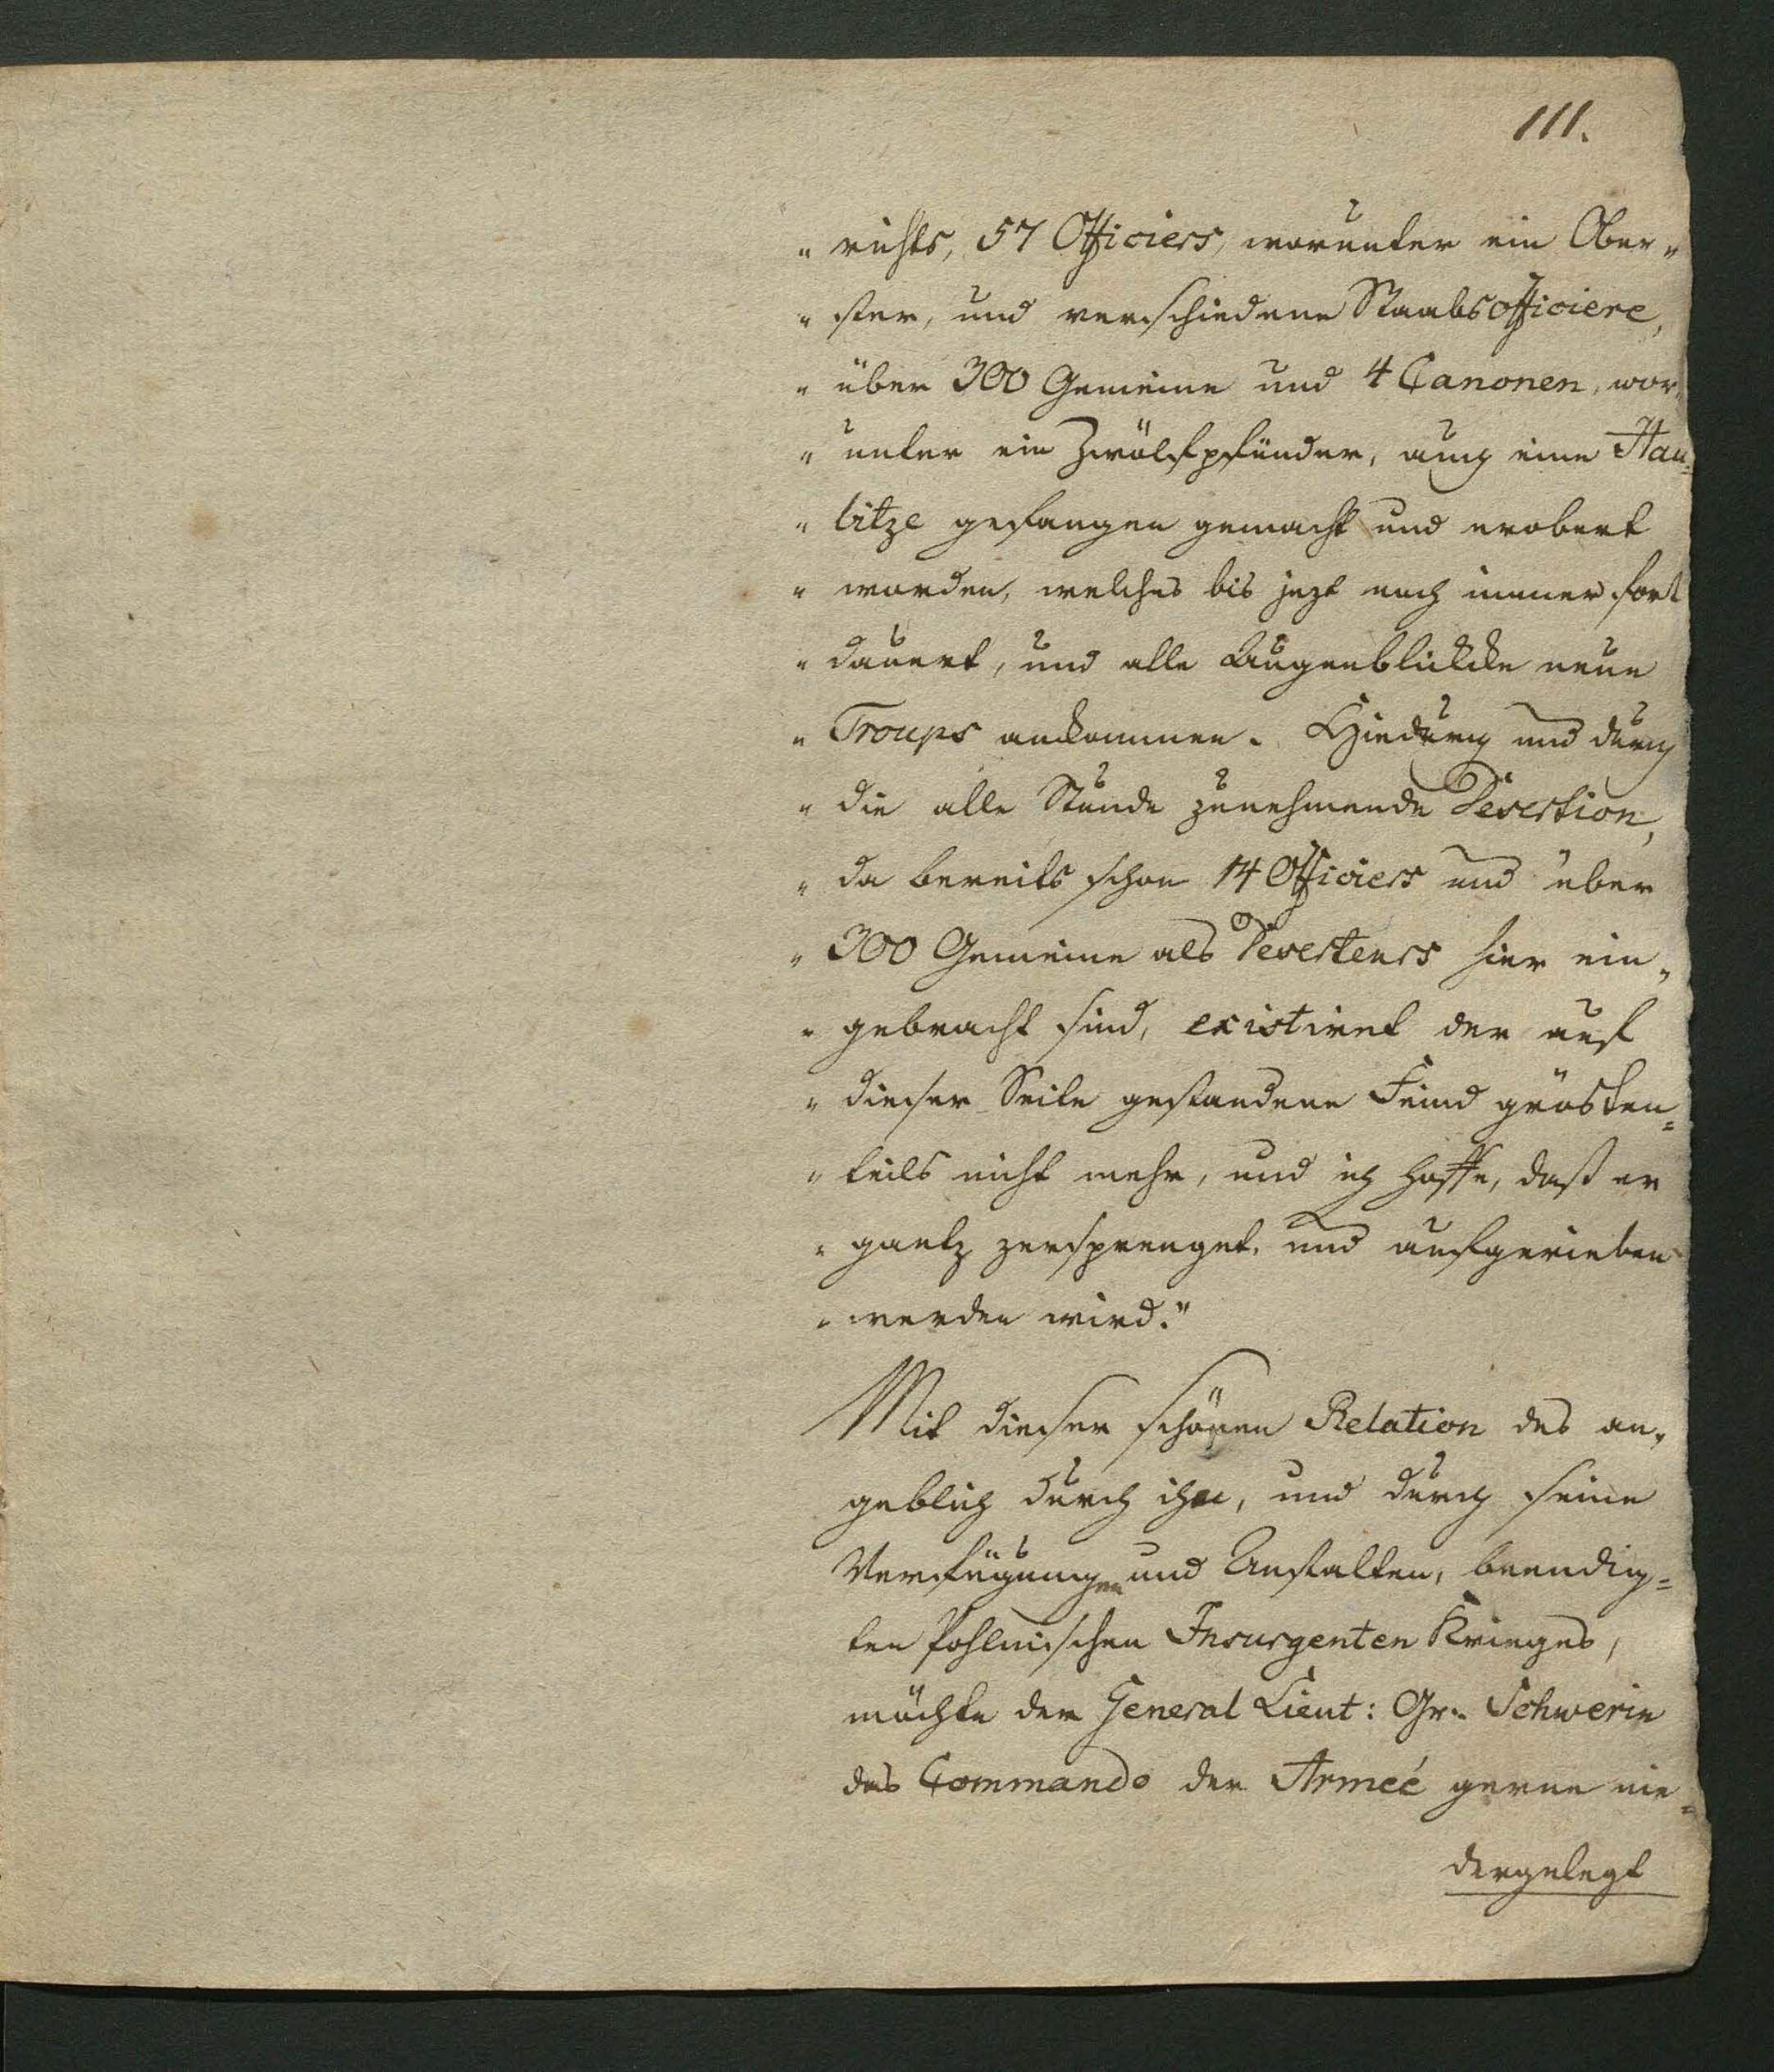 111.
" richts, 57 Officiers, worunter ein Ober"
" ster, und verschiedene Staabsofficiere,
" über 300 Gemeine und 4 Canonen, wor"
" unter ein Zwölfpfünder, auch eine Hau=
" bitze gefangen gemacht und erobert
" worden, welches bis jezt noch immer fort
" dauert, und alle Augenblickke neue
" Troups ankommen. Hiedurch und durch
" die alle Stunde zunehmende Desertion,
" da bereits schon 14 Officiers und über
" 300 Gemeine als Deserteurs hier ein"
" gebracht sind, existiret der auf
" dieser Seite gestandene Feind grösten=
" teils nicht mehr, und ich hoffe, daß er
" gantz zersprenget, und aufgerieben
" werden wird."
Mit dieser schönen Relation des an"
geblich durch ihn, und durch seine
Verfügungen und Anstalten, beendig=
ten Pohlnischen Insurgenten Krieges,
möchte der General Lieut: Gr. Schwerin
das Commando der Armeé gerne nie=
dergelegt